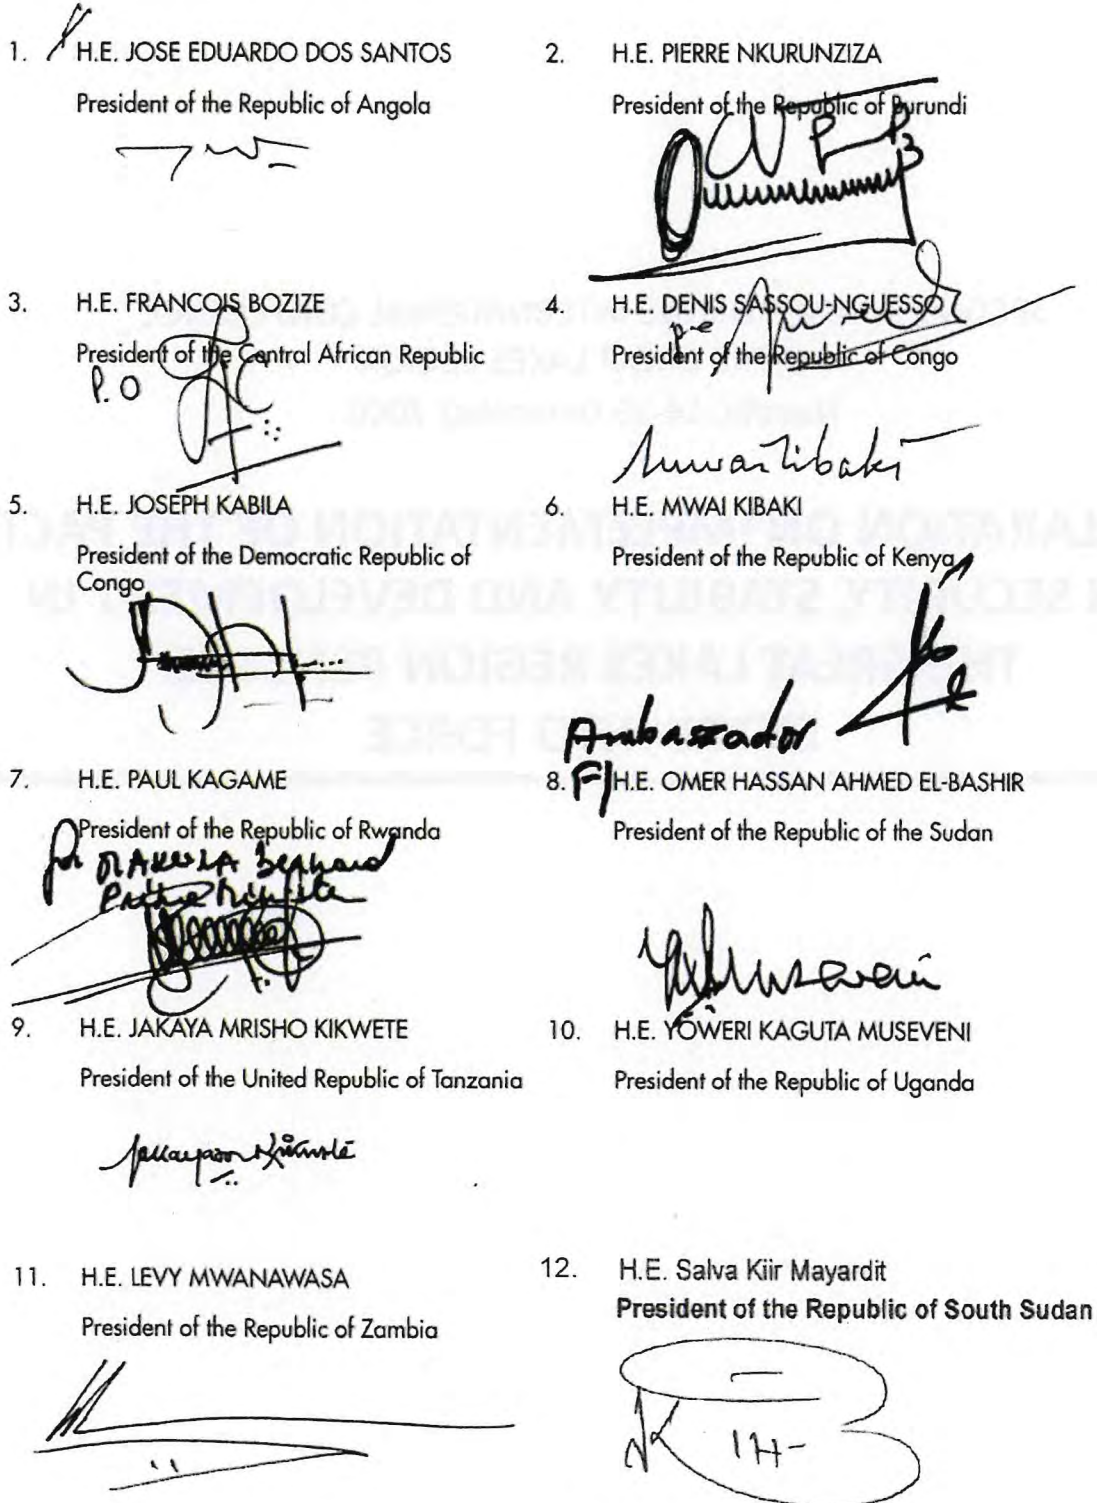 1. H.E. JOSE EDUARDO DOS SANTOS
President of the Republic of Angola
2. H.E. PIERRE NKURUNZIZA
President of the Republic of Burundi
3. H.E. FRANCOIS BOZIZE
President of the Central African Republic
P.O
4. H.E. DENIS SASSOU-NGUESSO
President of the Republic of Congo
5. H.E. JOSEPH KABILA
President of the Democratic Republic of
Congo
Mwai Kibaki
6. H.E. MWAI KIBAKI
President of the Republic of Kenya
7. H.E. PAUL KAGAME
President of the Republic of Rwanda
for MAKUZA Bernard
Prime Minister
Ambassador
8. F/ H.E. OMER HASSAN AHMED EL-BASHIR
President of the Republic of the Sudan
9. H.E. JAKAYA MRISHO KIKWETE
President of the United Republic of Tanzania
Museveni
10. H.E. YOWERI KAGUTA MUSEVENI
President of the Republic of Uganda
11. H.E. LEVY MWANAWASA
President of the Republic of Zambia
12. H.E. Salva Kiir Mayardit
President of the Republic of South Sudan